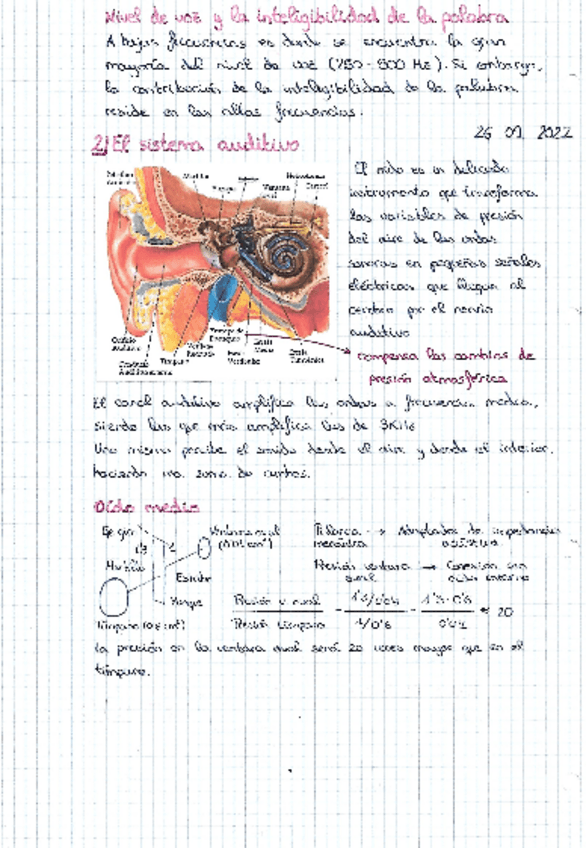 Nivel de voz y la inteligibilidad de la palabra
A bajas frecuencias es donde se encuentra la gran
mayoría del nivel de voz (250-500 Hz). Sin embargo,
la contribución de la inteligibilidad de la palabra
reside en las altas frecuencias.
26 09 2022
2) El sistema auditivo
El oído es un delicado
instrumento que transforma
las variables de presión
del aire de las ondas
sonoras en pequeñas señales
eléctricas que llegan al
cerebro por el nervio
auditivo
Martillo
Yunque
Ventana
Oval
Caracol
Trompa de
Eustaquio
Ventana
Redonda
Tímpano
Conducto
compensa los cambios de
presión atmosférica
El canal auditivo amplifica las ondas a frecuencias medias,
siendo las que más amplifica las de 3KHz
Uno mismo percibe el sonido desde el aire y desde el interior,
haciendo una suma de ambos.
Oído medio
Eje giro
1'3
1
Ventana oval
Martillo
Estribo
Yunque
Tímpano
Palanca → Adaptador de impedancias
mecánica acústica
Presión ventana → Conexión con
oval oído interno
Presión v oval / Presión tímpano = 1'3/0'04 / 1/0'6 = 1'3·0'6 / 0'04 ≈ 20
la presión en la ventana oval será 20 veces mayor que en el
tímpano.